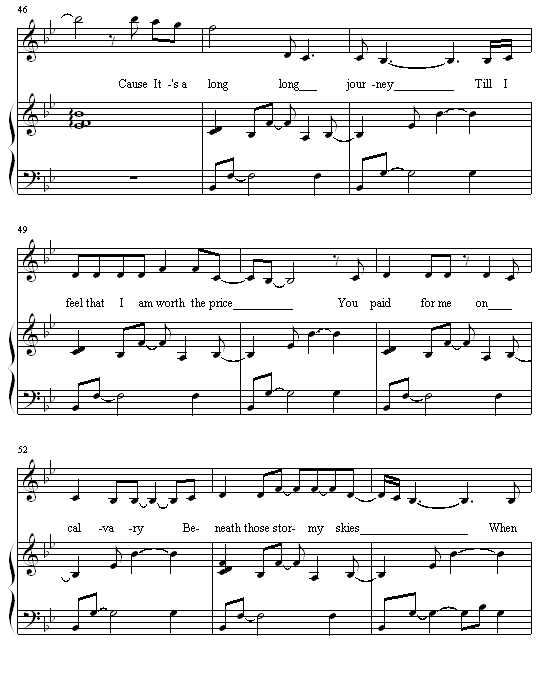 46
Cause It -'s a long long___ jour -ney__________ Till I
49
feel that I am worth the price__________ You paid for me on____
52
cal -va -ry Be- neath those stor- my skies__________________ When